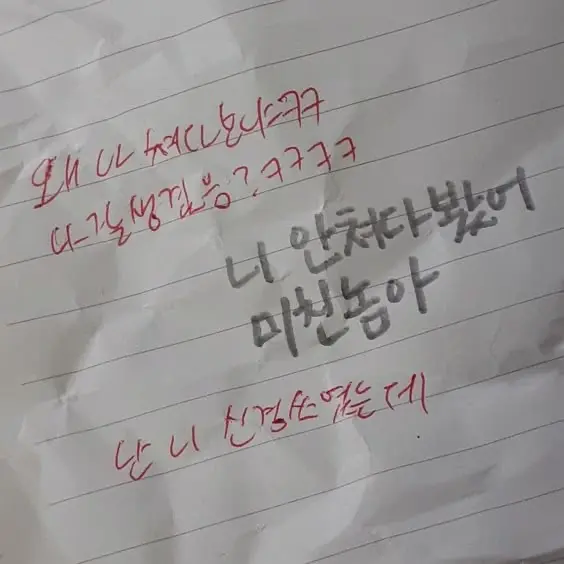 왜 나 쳐다보냐ㅋㅋ
나 잘생겼음?ㅋㅋㅋㅋ
니 안쳐다봤어
미친놈아
난 니 신경쓴 없는데